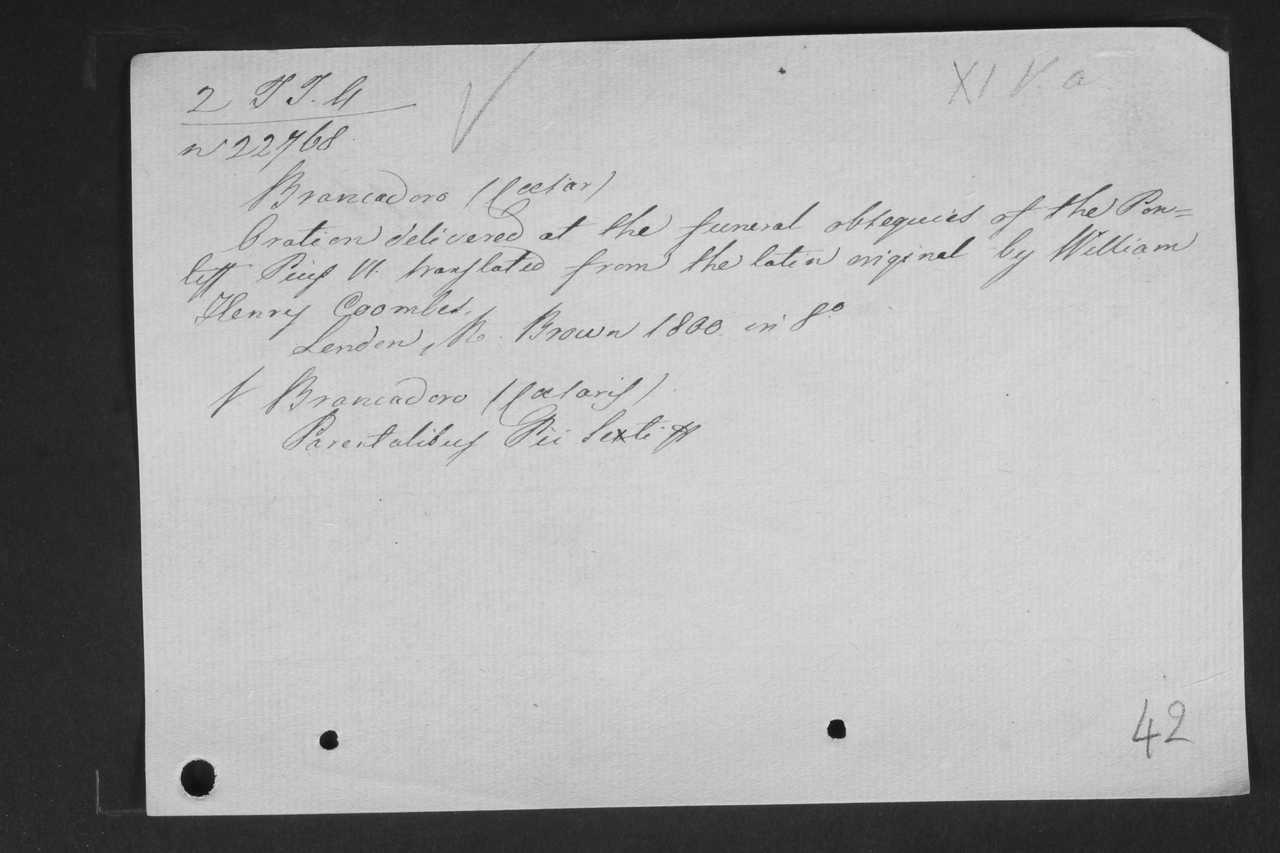 2 T T. 4
XI V. a
n 22768.
Brancadoro (Cæsar)
Oration delivered at the funeral obsequies of the Pon=
tiff Pius VI. translated from the latin original by William
Henry Coombes.
London, Brown 1800 in 8º
V Brancadoro (Cæsaris)
Parentalibus Pii Sexti
42